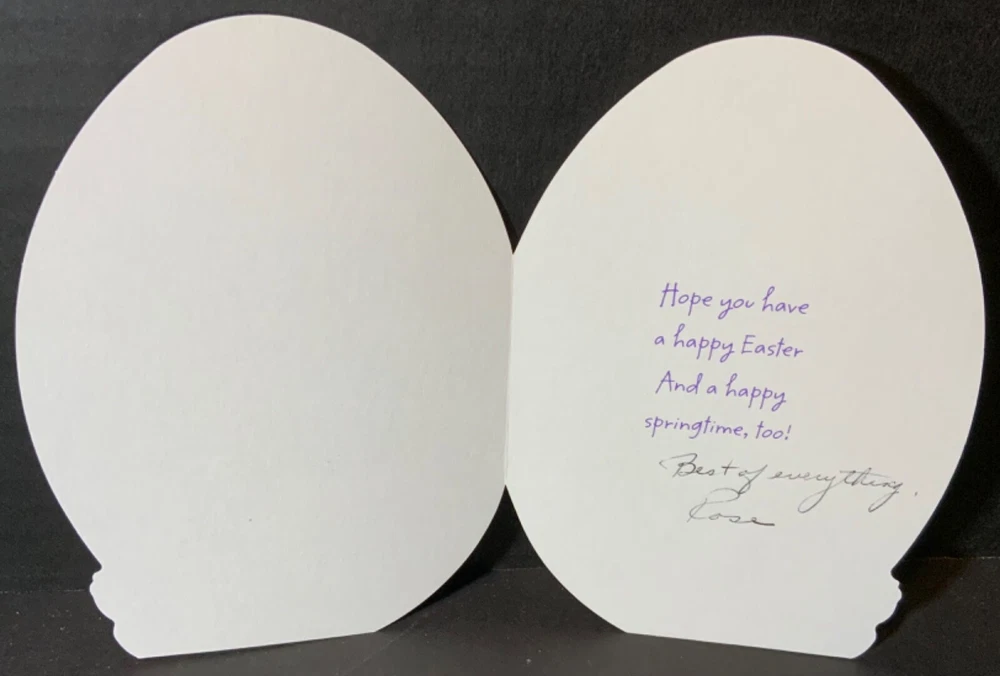 Hope you have
a happy Easter
And a happy
springtime, too!
Best of everything.
Rose